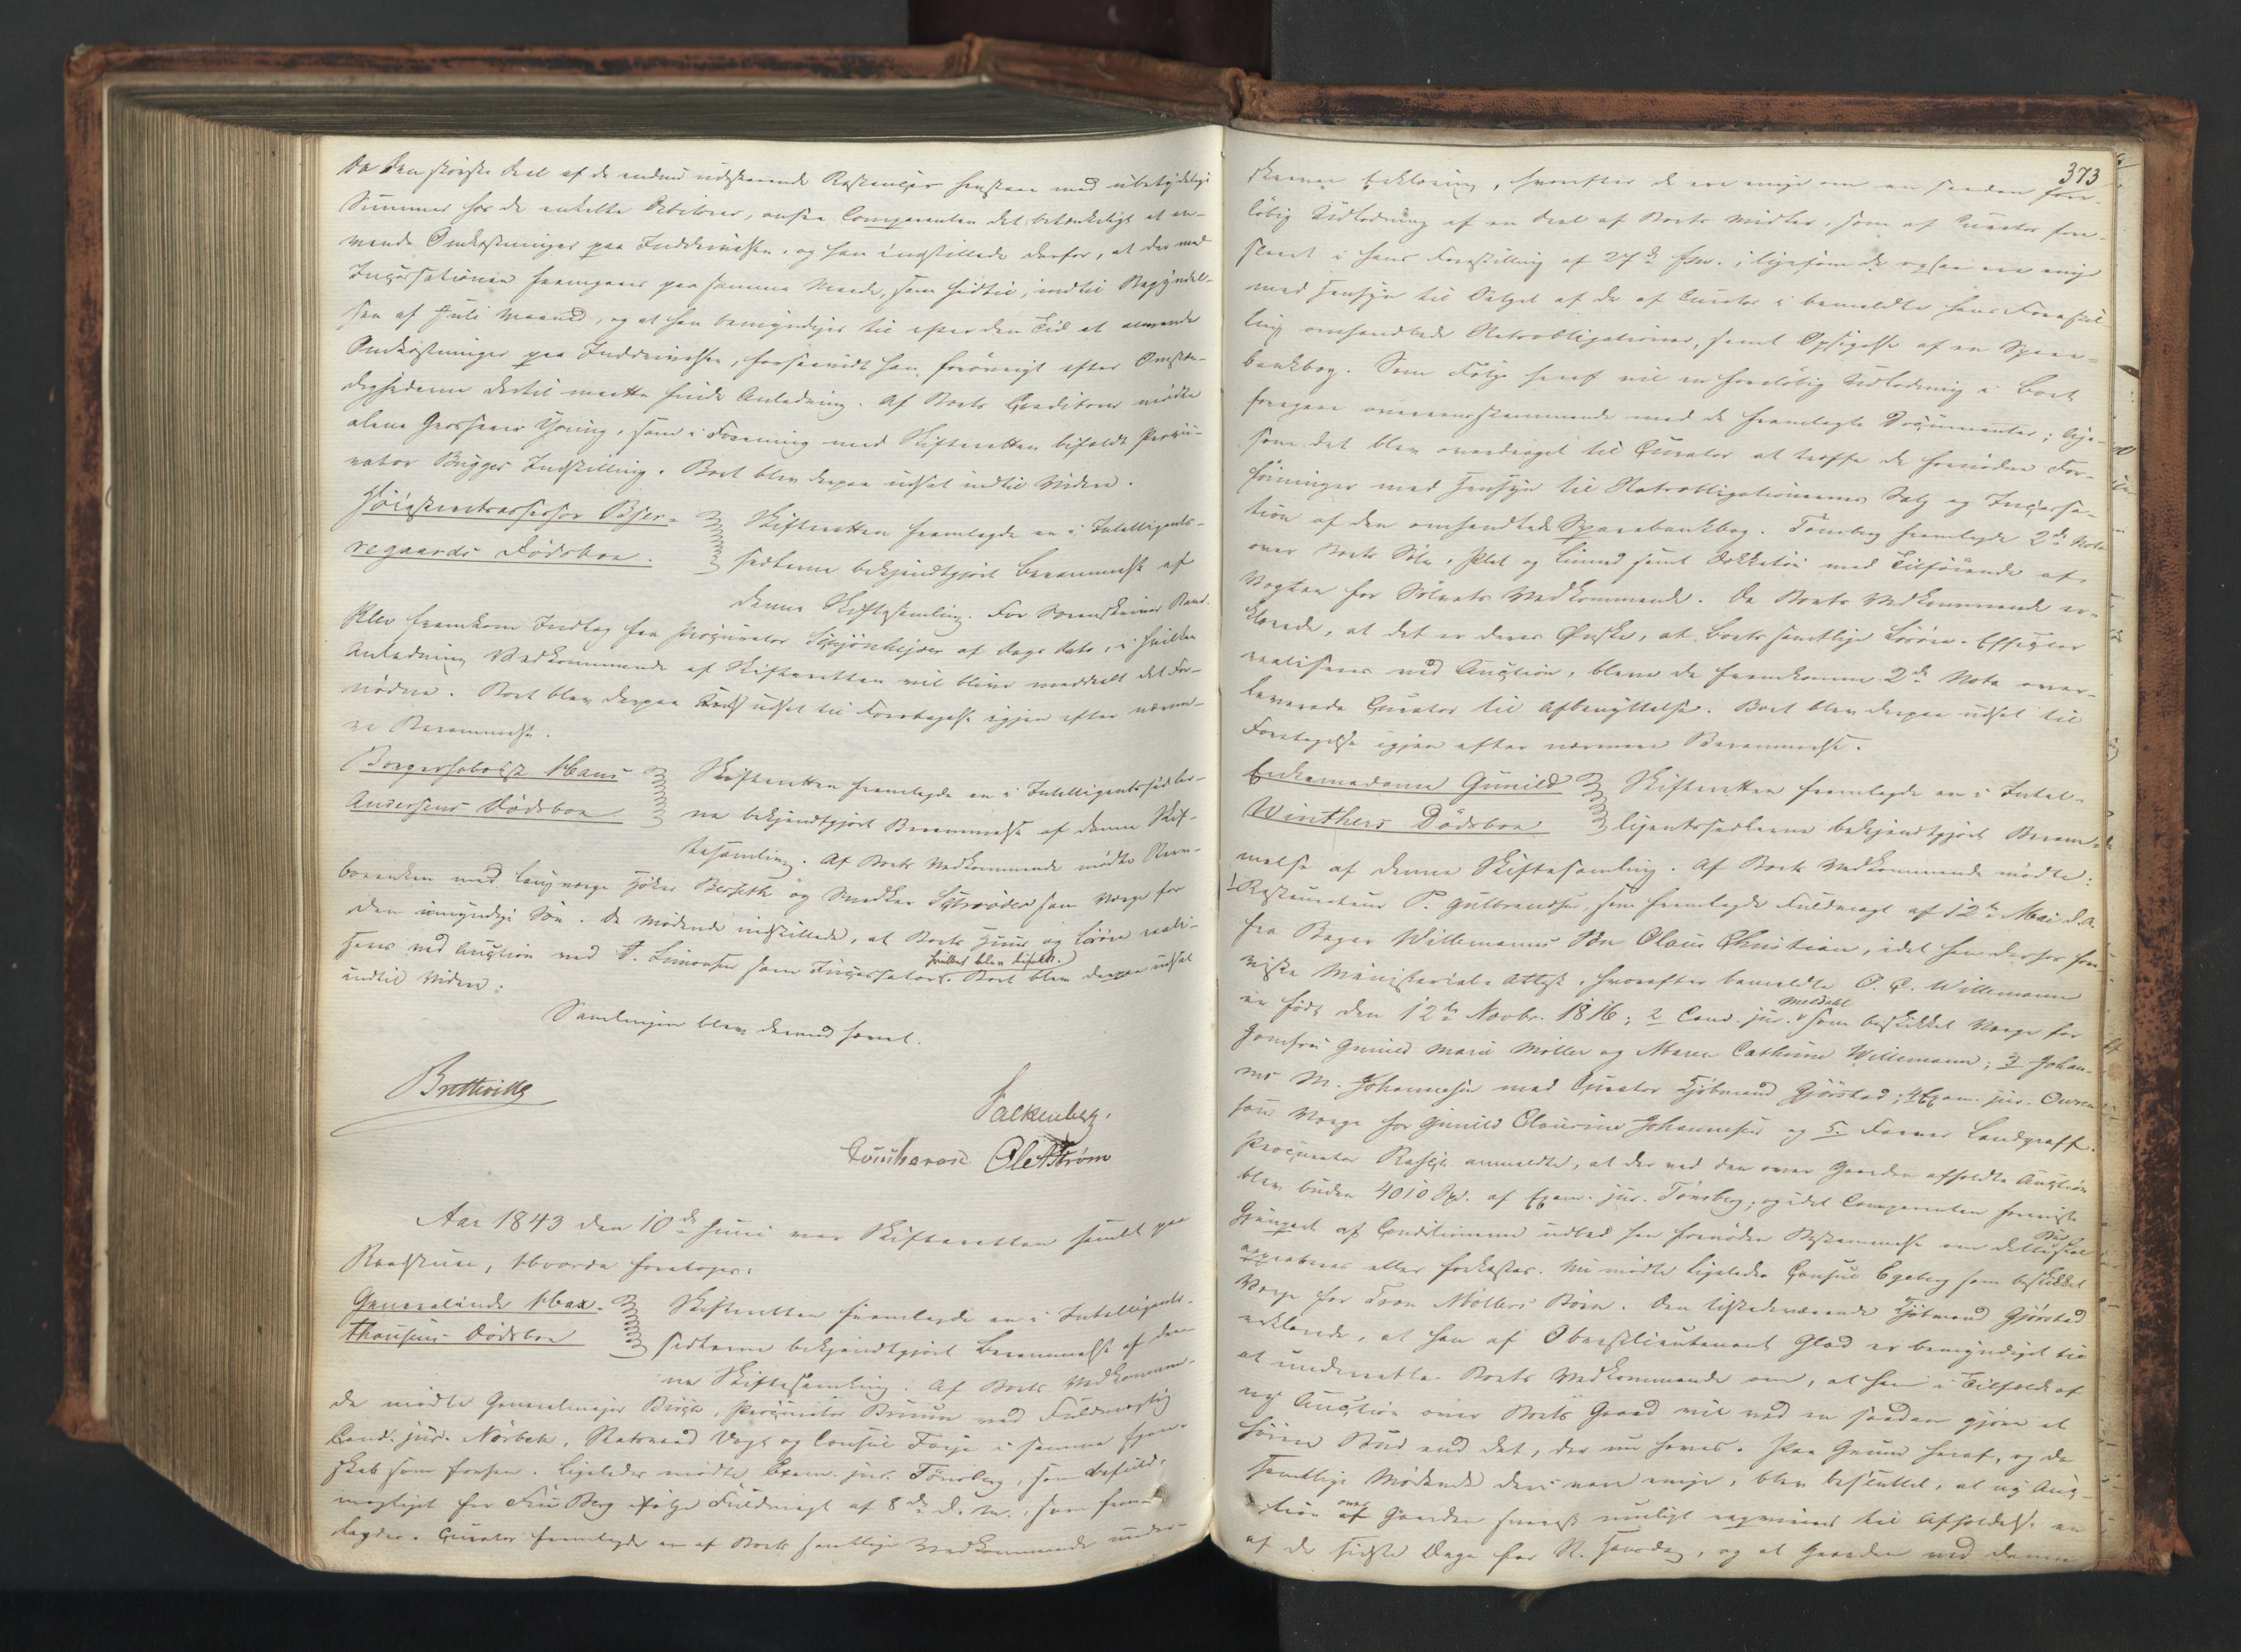 Da den største Deel af de endnu udestaaende Restancer henstaae med ubetydelige
Summer hos de enkelte Debitorer, ansaa Comparenten det betænkeligt at an-
vende Omkostninger paa Inddrivelsen, og han indstillede derfor, at der med
Incassationen fremgaaes paa samme Maade, som hidtil, indtil Begyndel-
sen af Juli Maaned, og at han bemyndiges til efter den Tid at anvende
Omkostninger paa Inddrivelsen, forsaavidt han forøvrigt efter Omstæn-
dighederne dertil maatte finde Anledning. Af Boets Creditorer mødte
alene Grosserer Young, som i Forening med Skifteretten bifaldt Procu-
rator Bugges Indstilling. Boet blev derpaa udsat indtil Videre.
Höiesteretsassessor Bjer-
regaards Dödsboe.
Skifteretten fremlagde en i Intelligents-
sedlerne bekjendtgjort Berammelse af
denne Skiftesamling. For Sorenskriver
blev fremkom Indlæg fra Procurator af Dags Dato, i hvilken
Anledning Vedkommende af Skifteretten vil blive meddeelt det For-
nødne. Boet blev derpaa udsat til Foretagelse igjen efter nærme-
re Berammelse.
Borgerhaboist Hans
Andersens Dödsboe
Skifteretten fremlagde en i Intelligentssedler-
ne bekjendtgjort Berammelse af denne Skif-
tesamling. Af Boets Vedkommende mødte Stervˍ
boeenken med Laugværge Høker Berseth og Snedker Schrøder som Værge for
den umyndige Søn. De Mødende indstillede, at Boets Huus og Løsøre reali-
seres ved Auction med A. Simonsen som Incassator, hvilket blev bifaldt. Boet blev derpaa udsat
indtil Videre.
Samlingen blev dermed hævet.
Bretteville
Falkenberg.
Ole A Strøm
Aar 1843 den 10de Juni var Skifteretten samlet paa
Raadstuen, Hvorda foretoges:
Generalinde Hax-
thausens Dödsboe
Skifteretten fremlagde en i Intelligents-
sedlerne bekjendtgjort Berammelse af den-
ne Skiftesamling. Af Boets Vedkommen-
de mødte Generalmajor Birch, Procurator Bruun ved Fuldmægtig
Cand. jur. Nørbek, Statsraad Vogt og Consul Faye i samme Egen-
skab som forhen. Ligeledes mødte Exam. jur. Tönsberg, som befuld-
mægtiget for Fru Berg ifølge Fuldmagt af 8de d. M., som frem-
lagdes. Curator fremlagde en af Boets samtlige Vedkommende under-
373
skreven Erklæring, hvorefter de ere enige om en saadan fore-
løbig Udlodning af en Deel af Boets Midler, som af Curator fore-
slaaet i hans Forestilling af 27de f. M., ligesom de ogsaa ere enige
med Hensyn til Salget af de af Curator i bemeldte hans Forestil-
ling omhandlede Statsobligationer, samt Opsigelse af en Spare-
bankbog. Som Følge heraf vil en foreløbig Udlodning i Boet
foregaae overeensstemmende med de fremlagte Documenter; lige-
som det blev overdraget til Curator at træffe de fornødne For-
føininger med Hensyn til Statsobligationernes Salg og Incassa-
tion af den omhandlede Sparebankbog. Tönsberg fremlagde 2de Nota
over Boets Sølv, Plet og Linned samt Dækketøi med Tilføiende af
Vægten for Sølvets Vedkommende. Da Boets Vedkommende er-
klærede, at det er deres Ønske, at Boets samtlige Løsøre-Effecter
realiseres ved Auction, bleve de fremkomne 2de Nota over-
leverede Curator til Afbenyttelse. Boet blev derpaa udsat til
Foretagelse igjen efter nærmere Berammelse.
Enkemadame Gunild
Winthers Dödsboe
Skifteretten fremlagde en i Intel-
ligentssedlerne bekjendtgjort Beram-
melse af denne Skiftesamling. Af Boets Vedkommende mødte:
1 Restaurateur P. Gulbrandsen, som fremlagde Fuldmagt af 12te Mai d. A.
fra Bager Willemanns Søn Claus Christian, idet han derhos fore-
viste Ministerial-Attest, hvorefter bemeldte C. C. Willemann
er født den 12te Novbr. 1816; 2 Cand. jur. Meldahl som beskikket Værge for
Jomfru Gunild Marie Møller og Maren Cathrine Willemann; 3 Johan-
nes M. Johannesen med Curator Kjøbmand Gjörstad; 4 Exam. jur. Owren
som Værge for Gunild Claurine Johannesen og 5. Farver Landgraff.
Procurator Rasch anmeldte, at der ved den over Gaarden afholdte Auction
blev buden 4010 Spd. af Exam. jur. Tönsberg; og idet Comparenten foreviste
Gjenpart af Conditionerne udbad han fornøden Bestemmelse om dette Bud skal
approberes eller forkastes. Nu mødte ligeledes Consul Egeberg som beskikket
Værge for Fron Möllers Börn. Den tilstedeværende Kjöbmand Gjörstad
erklærede, at han af Oberstlieutenant Glad er bemyndiget til
at underrette Boets Vedkommende om, at han i Tilfælde af
ny Auction over Boets Gaard vil ved en saadan gjøre et
høiere Bud end det, der nu haves. Paa Grund heraf, og da
samtlige Mødende deri vare enige, blev besluttet, at ny Auc-
tion over Gaarden snarest muligt reqvireres til Afholdelse en
af de sidste Dage før St. Hansdag, og at Gaarden ved denne